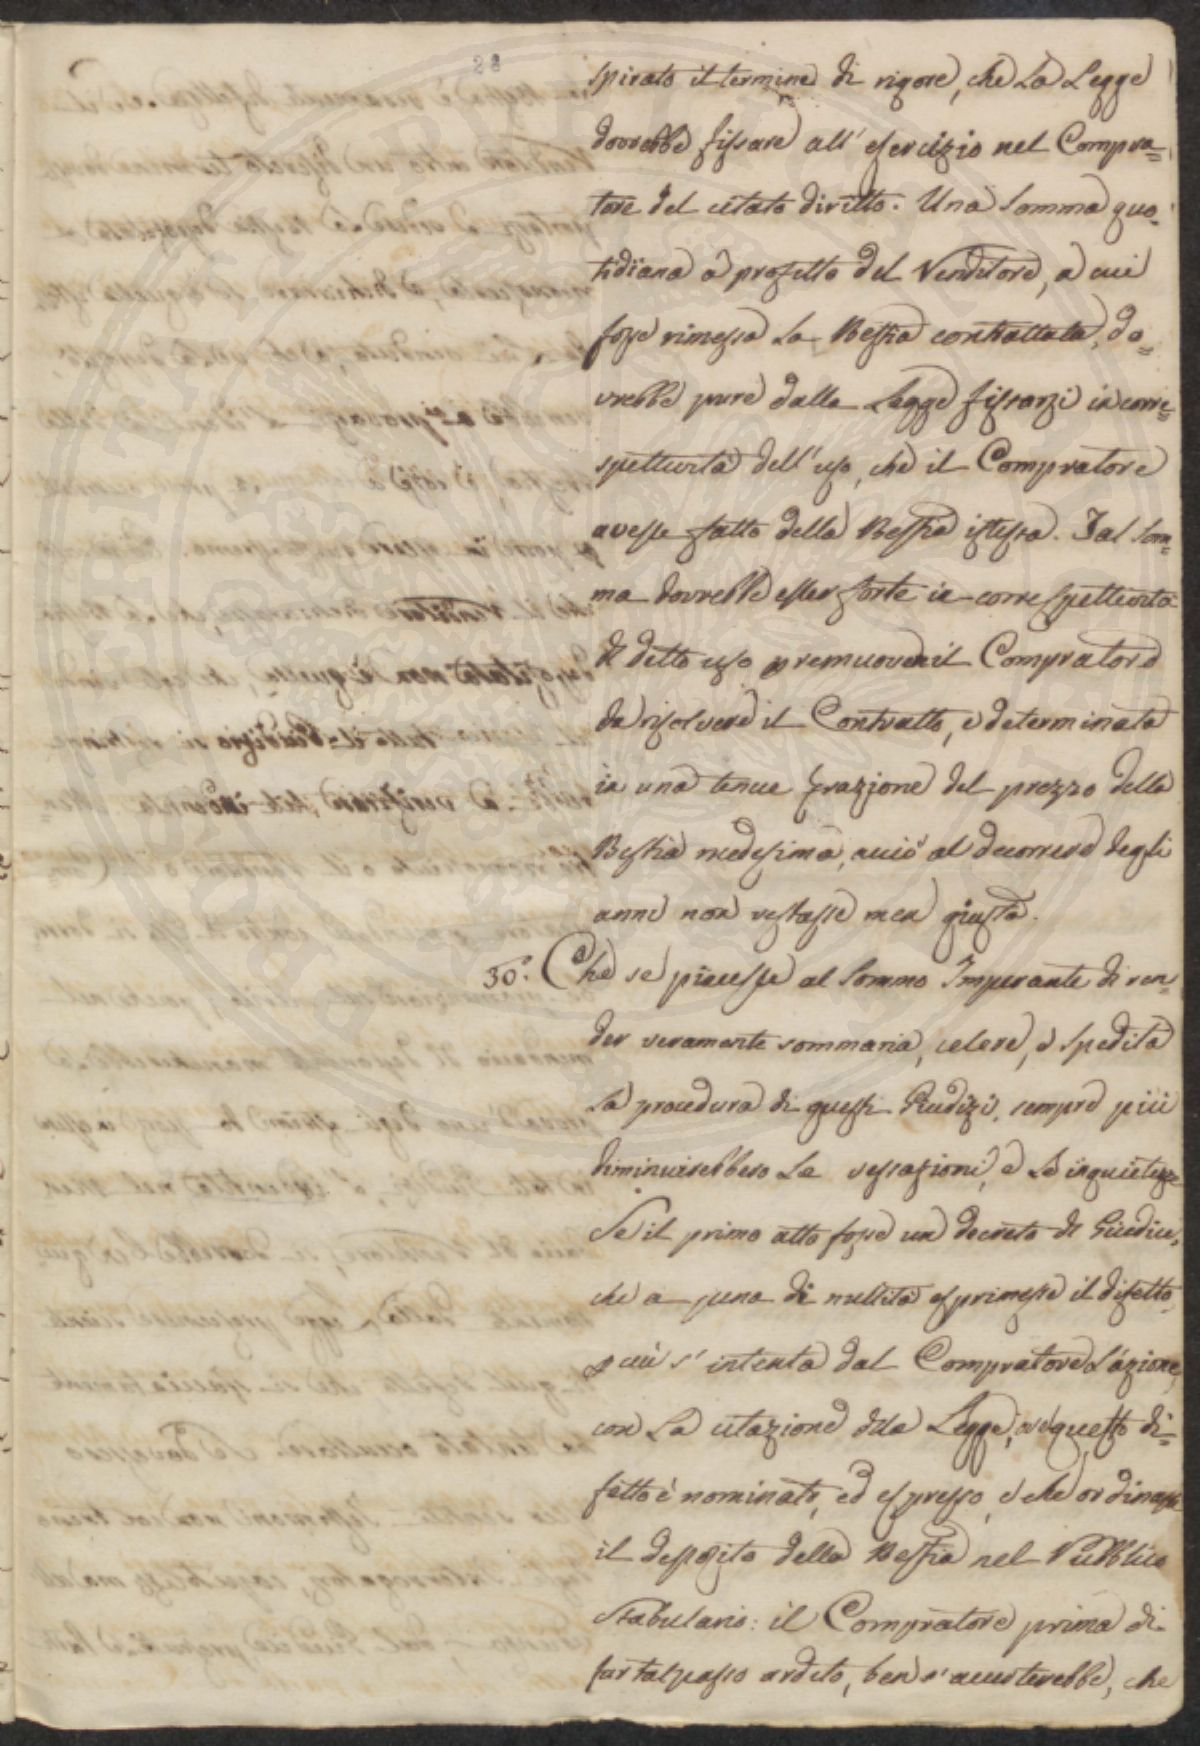 28
spirato il termine di rigore, che La Legge
dovrebbe fissare all' esercizio nel Compra=
tore del citato diritto. Una Somma quo=
tidiana a profitto del Venditore, a cui
fosse rimessa La Bestia contrattata, do=
vrebbe pure dalla Legge fissarsi in corre=
spettività dell' uso, che il Compratore
avesse fatto della Bestia istessa. Tal Som=
ma dovrebbe esser forte in correspettività
di detto uso premuoven il Compratore
da risolvere il Contratto, e determinata
in una tenue frazione del prezzo della
Bestia medesima, acciò al decorrere degli
anni non restasse men giusta.
30°. Che se piacesse al Sommo Imperante di ren=
der veramente sommaria, celere, e spedita
La procedura di questi Giudizi, sempre più
diminuirebbero Le vessazioni, e Le inquietezze
Se il primo atto fosse un decreto di Giudice,
che a pena di nullità esprimesse il difetto,
p cui s' intenta dal Compratore L'azione,
con La citazione della Legge, ove questo di=
fetto è nominato, ed espresso, e che ordinasse
il deposito della Bestia nel Pubblico
Stabulario: il Compratore prima di
far tal passo ardito, ben s' accerterebbe, che